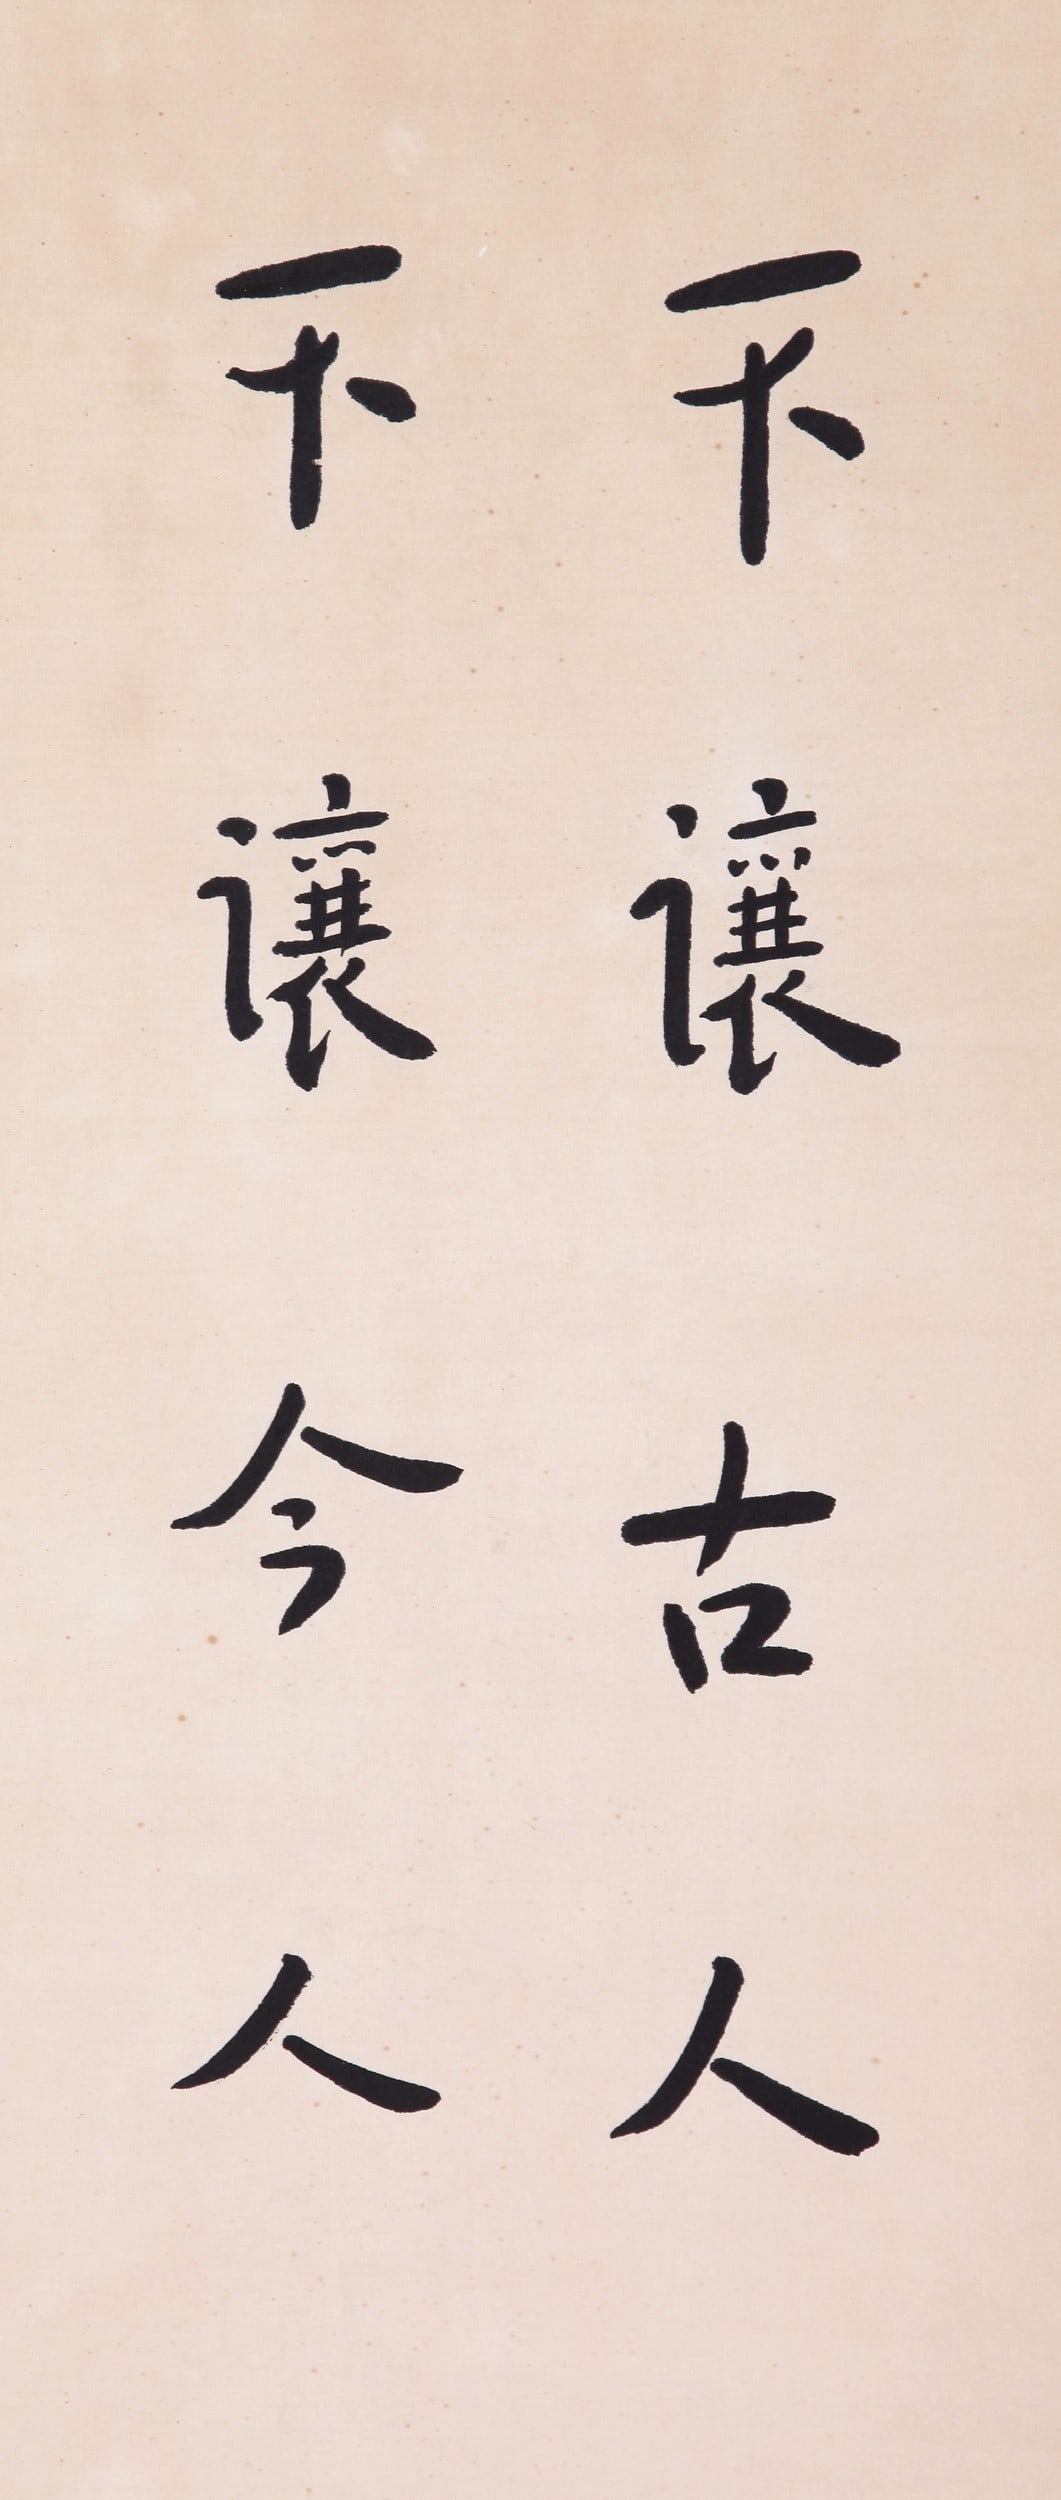 不讓古人
不讓今人